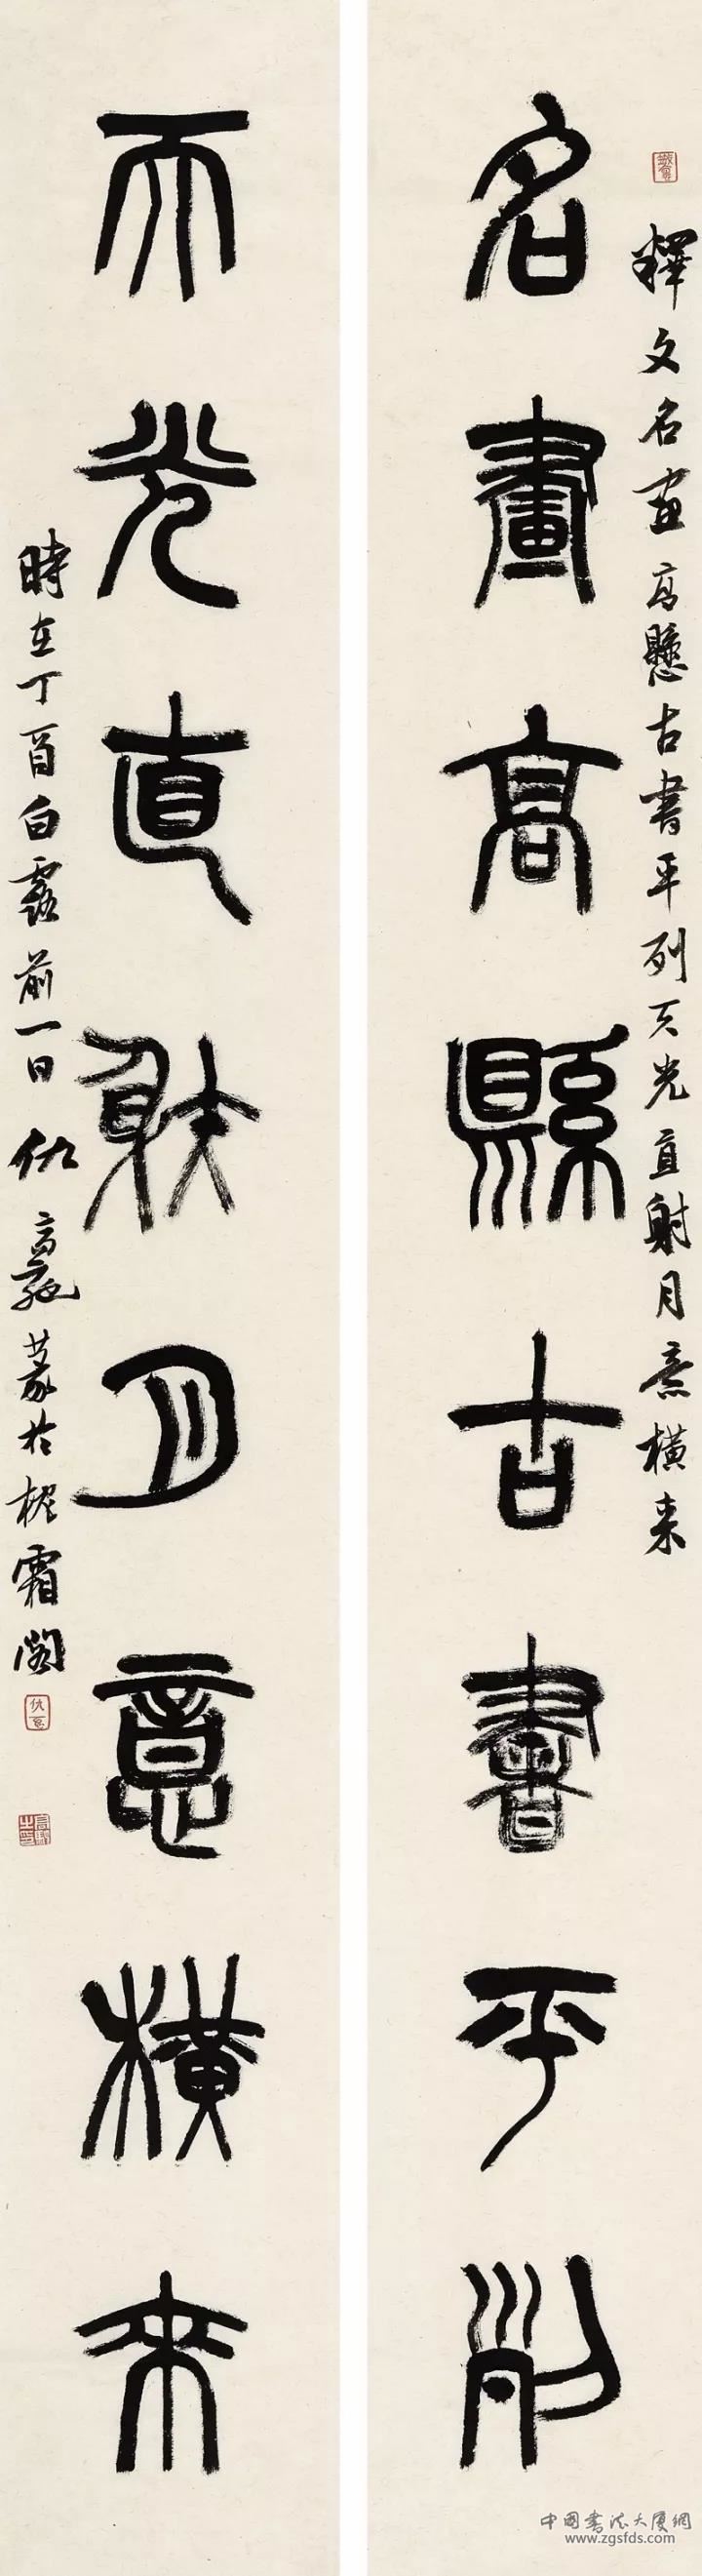 釋文名画高懸古書平列天光直射月意橫来
名畫高縣古書平列
天光直射月意橫來
時在丁酉白露前一日仇高馳篆於霜閣
中國書法大廈網
www.zgsfds.com